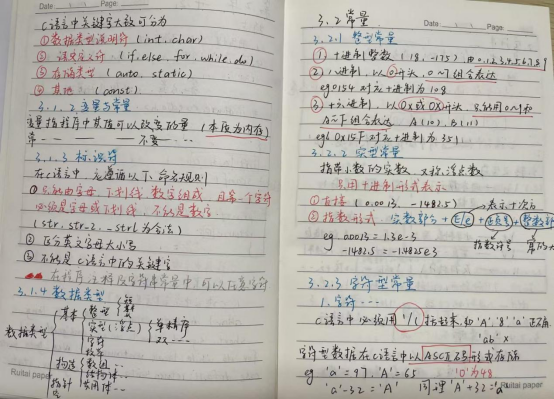 C语言中关键字大致可分为
①数据类型说明符 (int, char)
② 语句定义符 (if, else, for, while, do)
③ 存储类型 (auto, static)
④ 其他 (const)
3.1.2 变量与常量
变量指程序中其值可以改变的量 (本质为内存)
常 — — 不变…
3.1.3 标识符
在C语言中, 应遵循以下命名规则
①只能由字母、下划线、数字组成, 且第一个字符
必须是字母或下划线, 不能是数字
(str, str_2, _str1为合法)
② 区分英文字母大小写
③ 不能是C语言中的关键字
3.1.4 数据类型
数据类型
基本
整型
实型(浮点)
单精序
双…
字符
枚举
构造
数组…
结构体…
共用体…
指针
空
Ruitai paper
Date: Page:
3.2 常量
3.2.1 整型常量
① 十进制整数 (18, -175), 由0.1.2.3.4.5.6.7.8.9
② 八进制, 以0开头, 0~7组合表达
eg 0154 对应十进制为108
③ 十六进制, 以0x或0X开头,
A~F组合表达 A(10), B(11)
eg 0x15F对应十进制为351
3.2.2 实型常量
指带小数的实数, 又称浮点数
只用十进制形式表示
①直接 (0.0013, -1482.5)
表示十次方
② 指数形式 实数部分 + E/e + 正负号 + 整数部
eg 0.0013 = 1.3e-3
-1482.5 = -1.4825e3
指数符号
3.2.3 字符型常量
1. 字符…
C语言中必须用 '/' 括起来, 如 'A' '8' 'a' 正确
'ab' ×
字符型数据在C语言中以ASCII码形式存储
eg 'a' = 97, 'A' = 65 '0'为48
'a'-32 = 'A' 同理 'A'+32 = 'a'
Ruitai paper